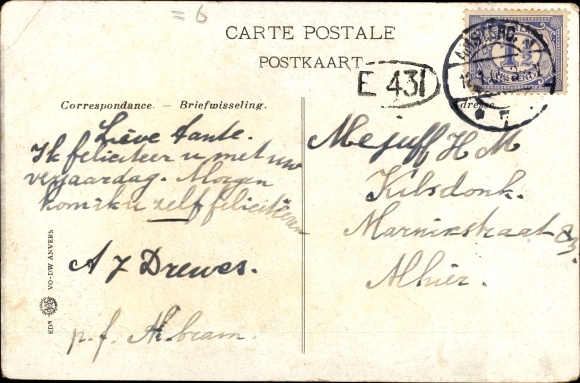 = 6
CARTE POSTALE
POSTKAART
E 431
AMSTERD.
1½
CENT
Correspondance. — Briefwisseling.
Adresse
Lieve tante.
Ik feliciteer u met uw
verjaardag. Morgen
kom ik u zelf feliciteeren
A J Drewes.
p.f.
Mejuff H M
Kilsdonk.
Marnixstraat
Alhier.
EDN VO-DW ANVERS